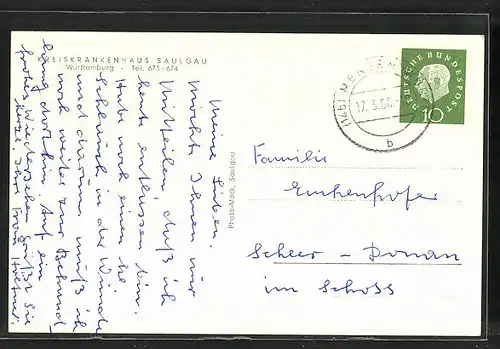 KREISKRANKENHAUS SAULGAU
Württemberg - Tel. 675-674
Meine Lieben.
Möchte Ihnen nur
mitteilen, daß ich
heute entlassen bin.
Habe noch einen kl.
Schlauch in der Wunde
und darum muß ich
noch weiter zur Behand-
lung dorthin. Auf ein
frohes Wiedersehen grüßt Sie
Ihre Frau
Photo-Mack, Saulgau
DEUTSCHE BUNDESPOST
10
17.3.60
b
Familie
Enkenhofer
Scheer - Donau
im Schloss